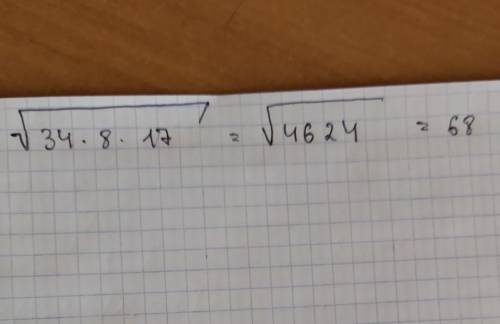 √34 · 8 · 17 = √4624 = 68